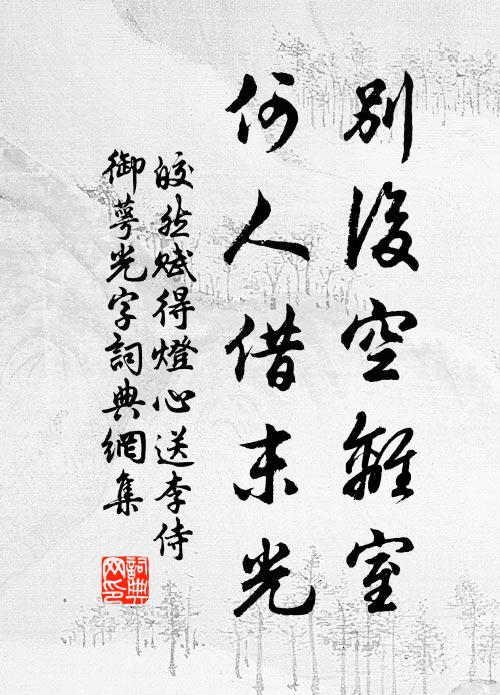 別後空離室
何人借末光
皎然賦得燈心送李侍
御萼光字詞典網集
詞典网印